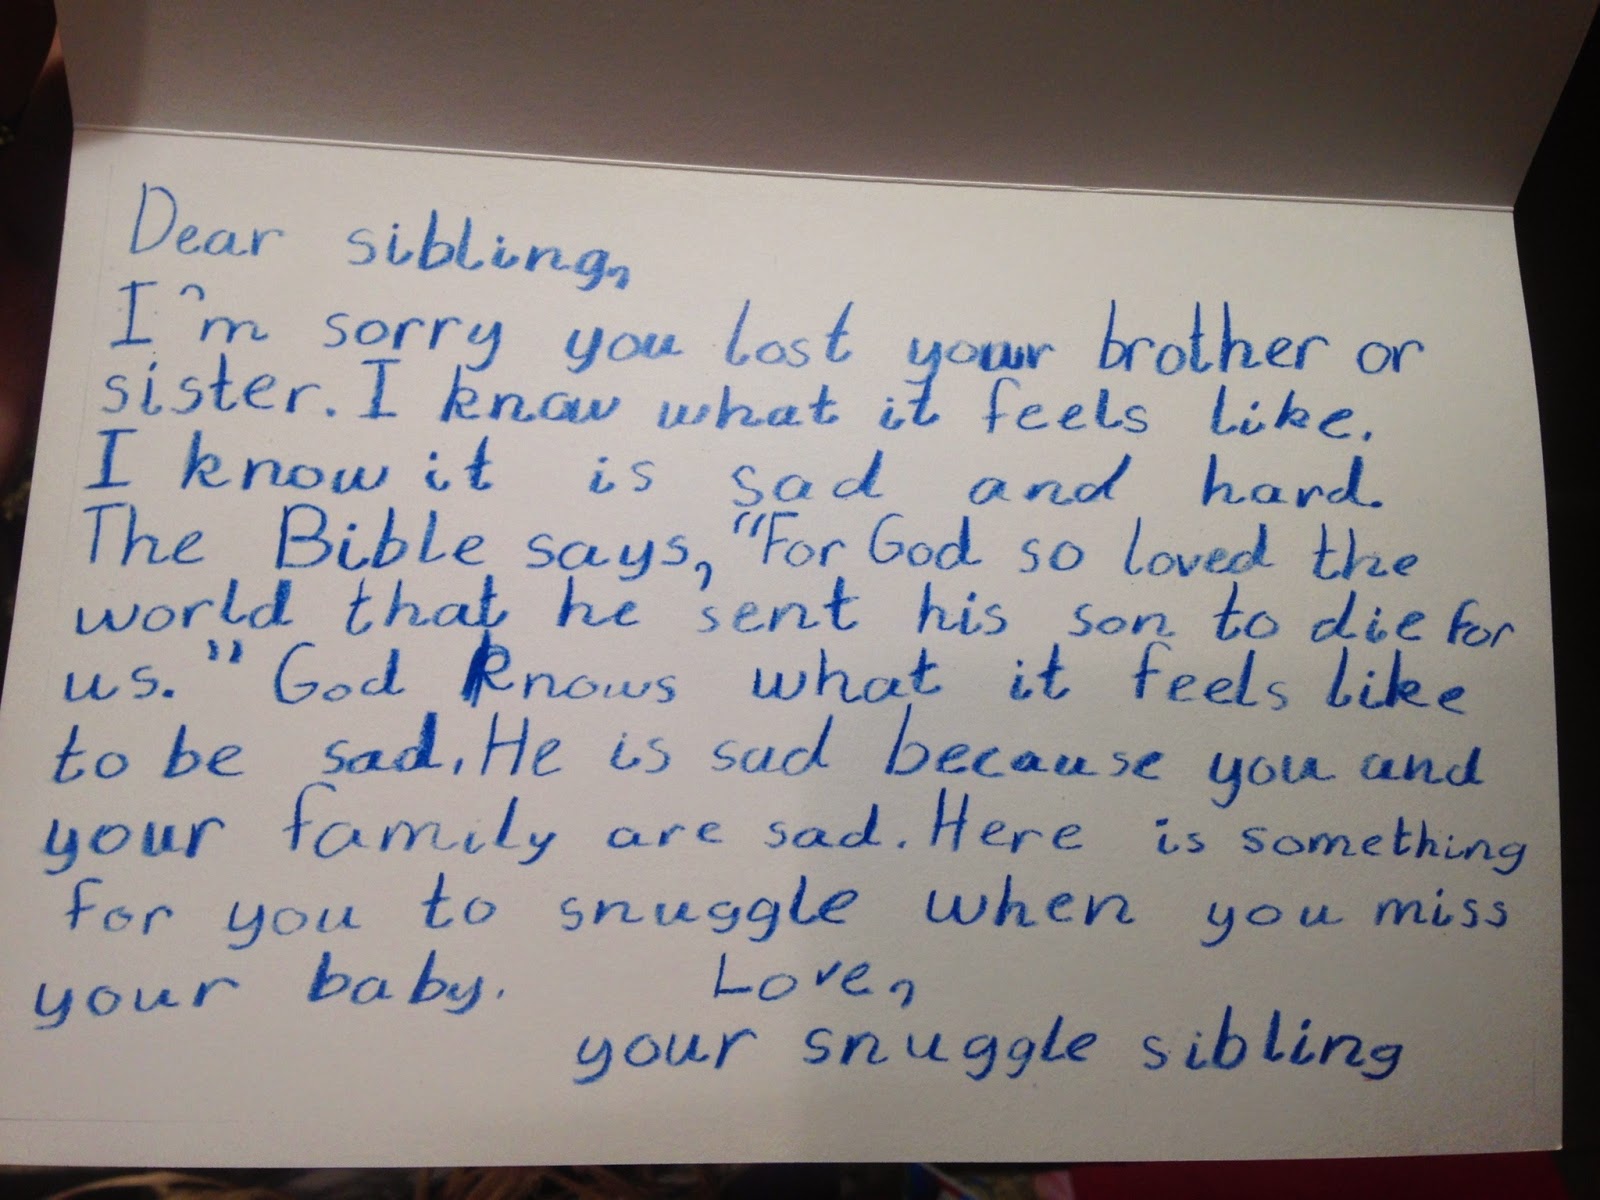 Dear sibling,
I'm sorry you lost your brother or
sister. I know what it feels like.
I know it is sad and hard.
The Bible says, "For God so loved the
world that he sent his son to die for
us." God knows what it feels like
to be sad. He is sad because you and
your family are sad. Here is something
for you to snuggle when you miss
your baby. Love,
your snuggle sibling